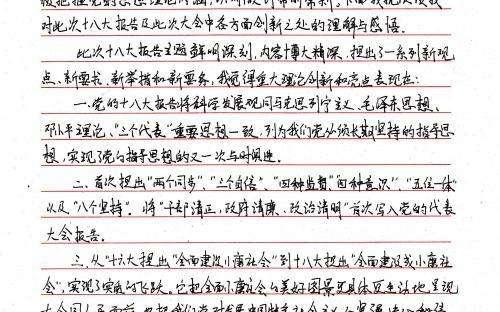 对此次十八大报告及此次大会中各方面创新之处的理解与感悟。
此次十八大报告主题鲜明深刻,内容博大精深,提出了一系列新观
点、新要求、新举措和新要务,我觉得重大理论创新和亮点表现在:
一.党的十八大报告将科学发展观同马克思列宁主义、毛泽东思想、
邓小平理论、"三个代表"重要思想一致,列为我们党必须长期坚持的指导思
想,实现了党的指导思想的又一次与时俱进。
二.首次提出"两个同步"、"三个自信"、"四种监督""四种意识"、"五位一体"
以及"八个坚持"。将"干部清正,政府清廉,政治清明"首次写入党的代表
大会报告。
三.从"十六大提出"全面建设小康社会"到十八大提出"全面建成小康社
会",实现了实质的飞跃。它把全面小康社会的美好图景更具体更生动地呈现